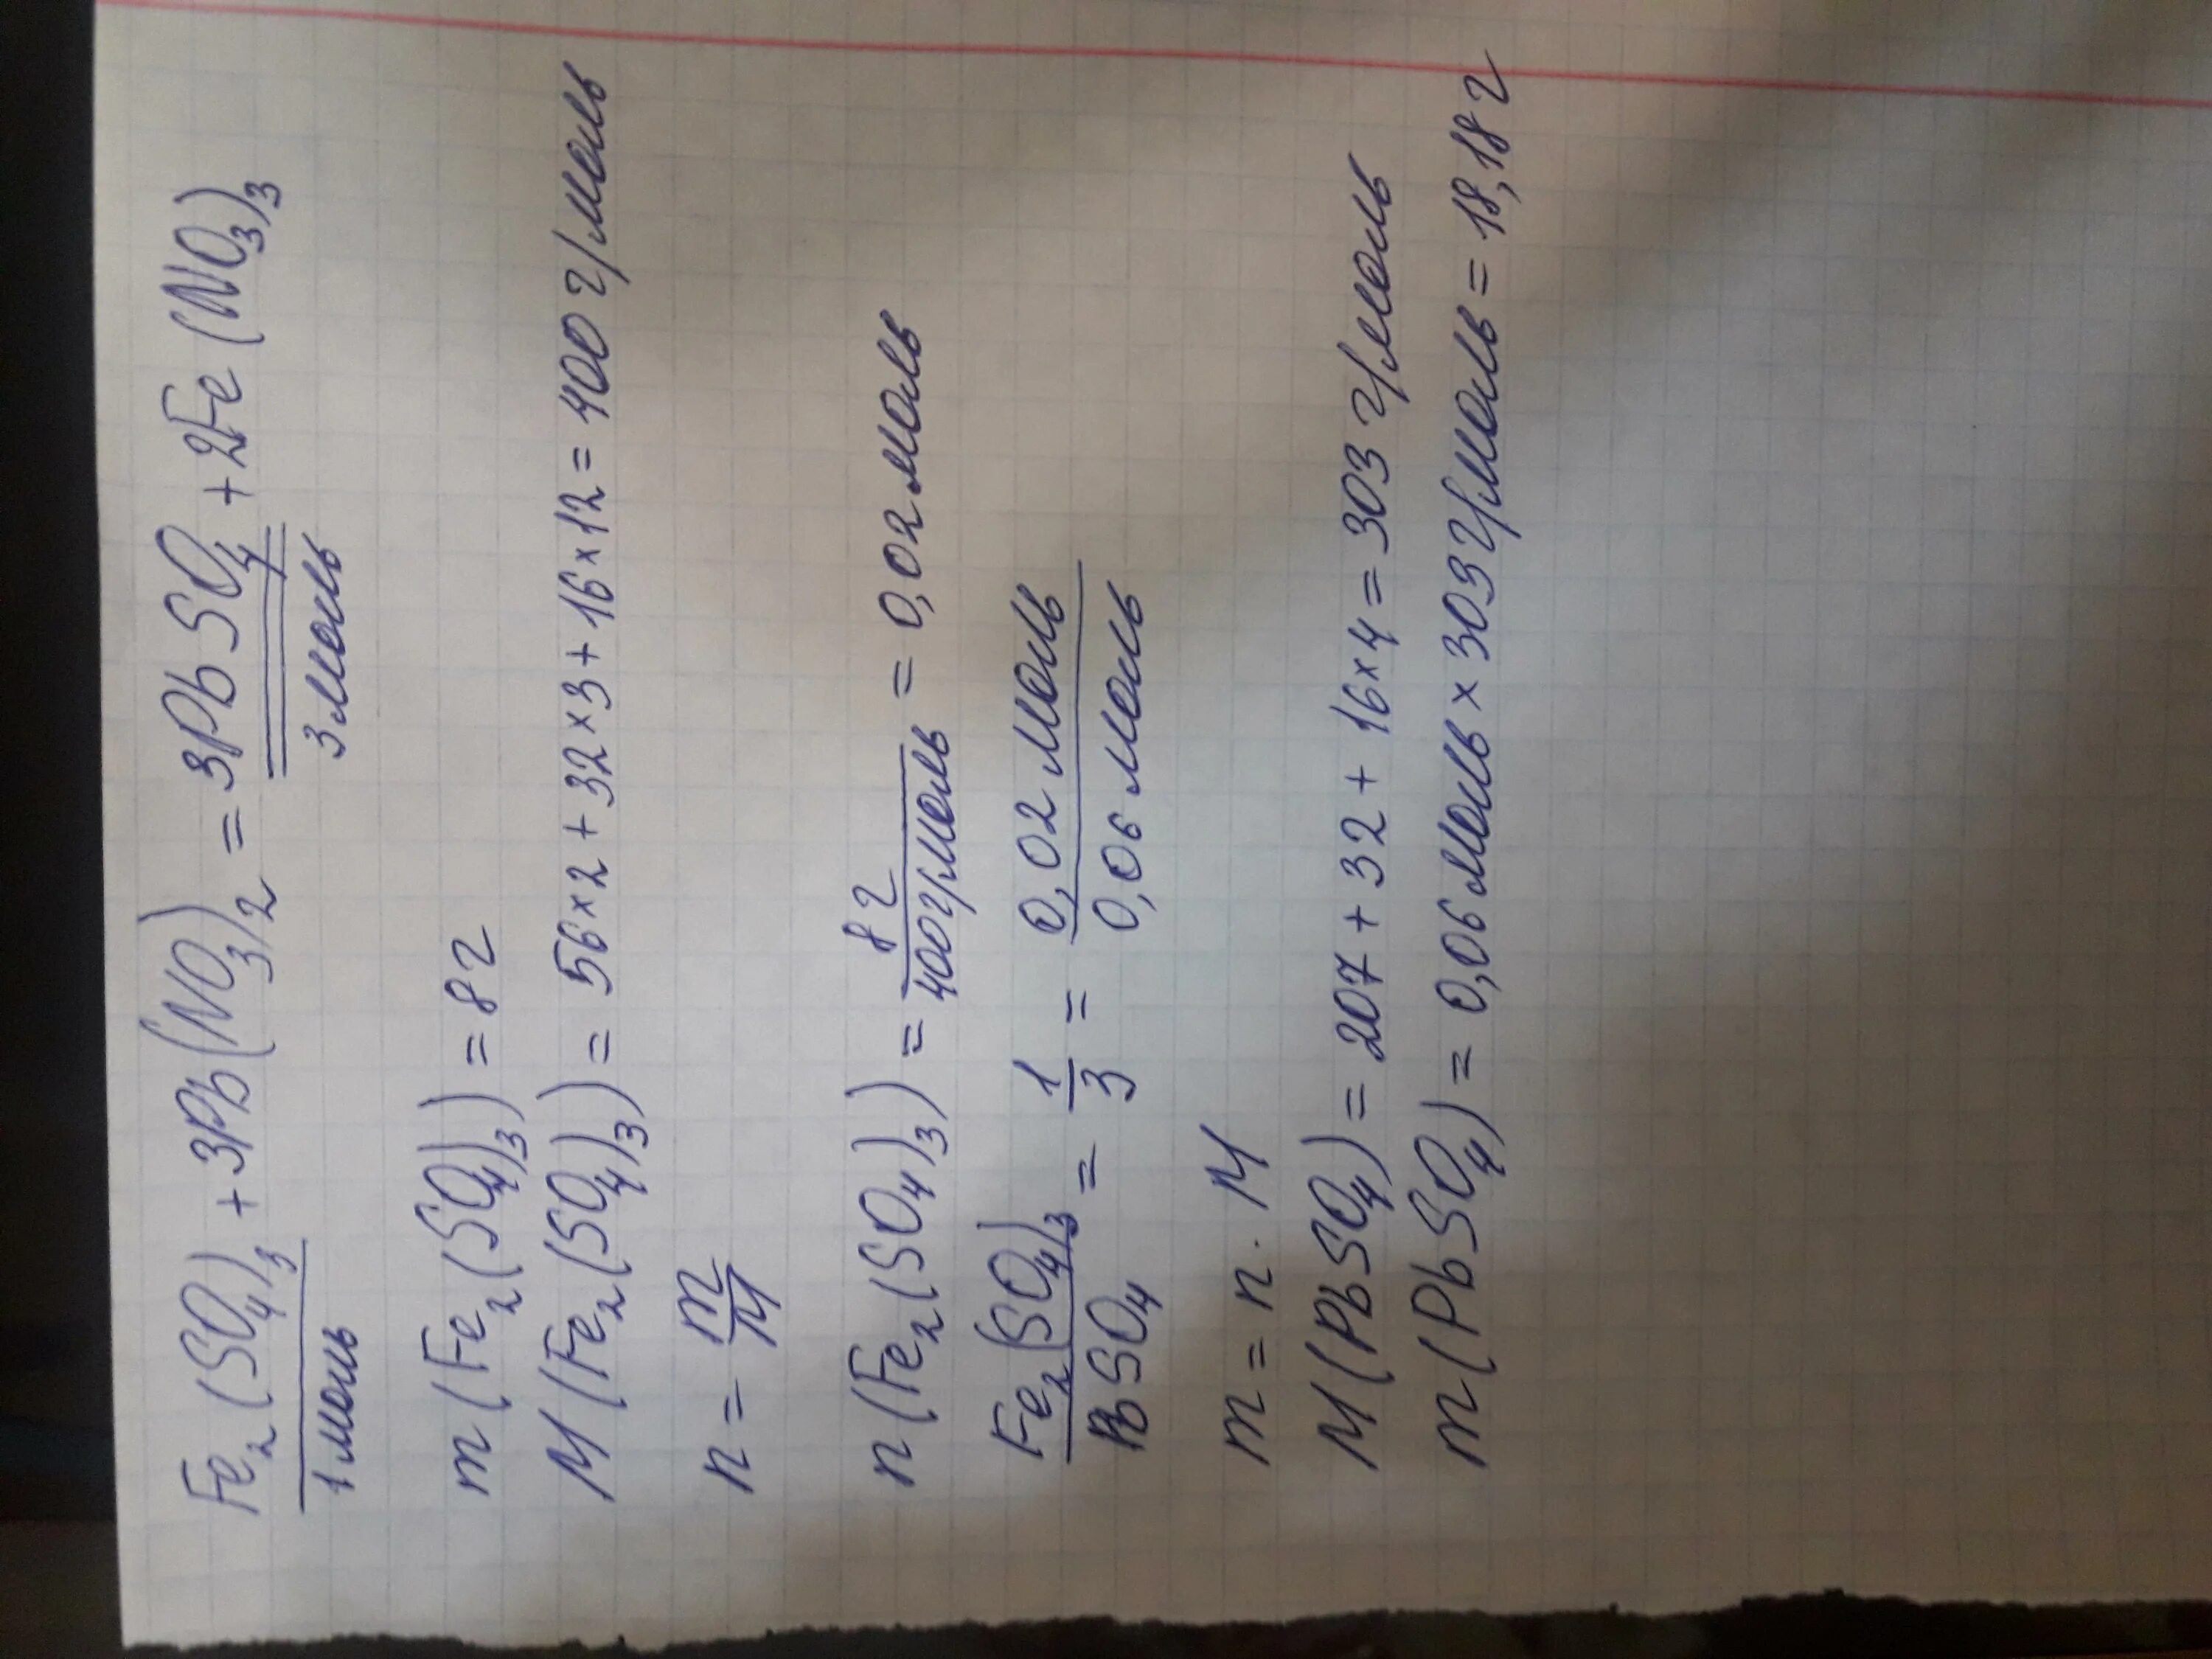 Fe₂(SO₄)₃ + 3Pb(NO₃)₂ = 3PbSO₄ + 2Fe(NO₃)₃
1 моль 3 моль
m(Fe₂(SO₄)₃) = 8 г
M(Fe₂(SO₄)₃) = 56×2 + 32×3 + 16×12 = 400 г/моль
n = m/M
n(Fe₂(SO₄)₃) = 8 г/400 г/моль = 0,02 моль
Fe₂(SO₄)₃/PbSO₄ = 1/3 = 0,02 моль/0,06 моль
m = n · M
M(PbSO₄) = 207 + 32 + 16×4 = 303 г/моль
m(PbSO₄) = 0,06 моль × 303 г/моль = 18,18 г